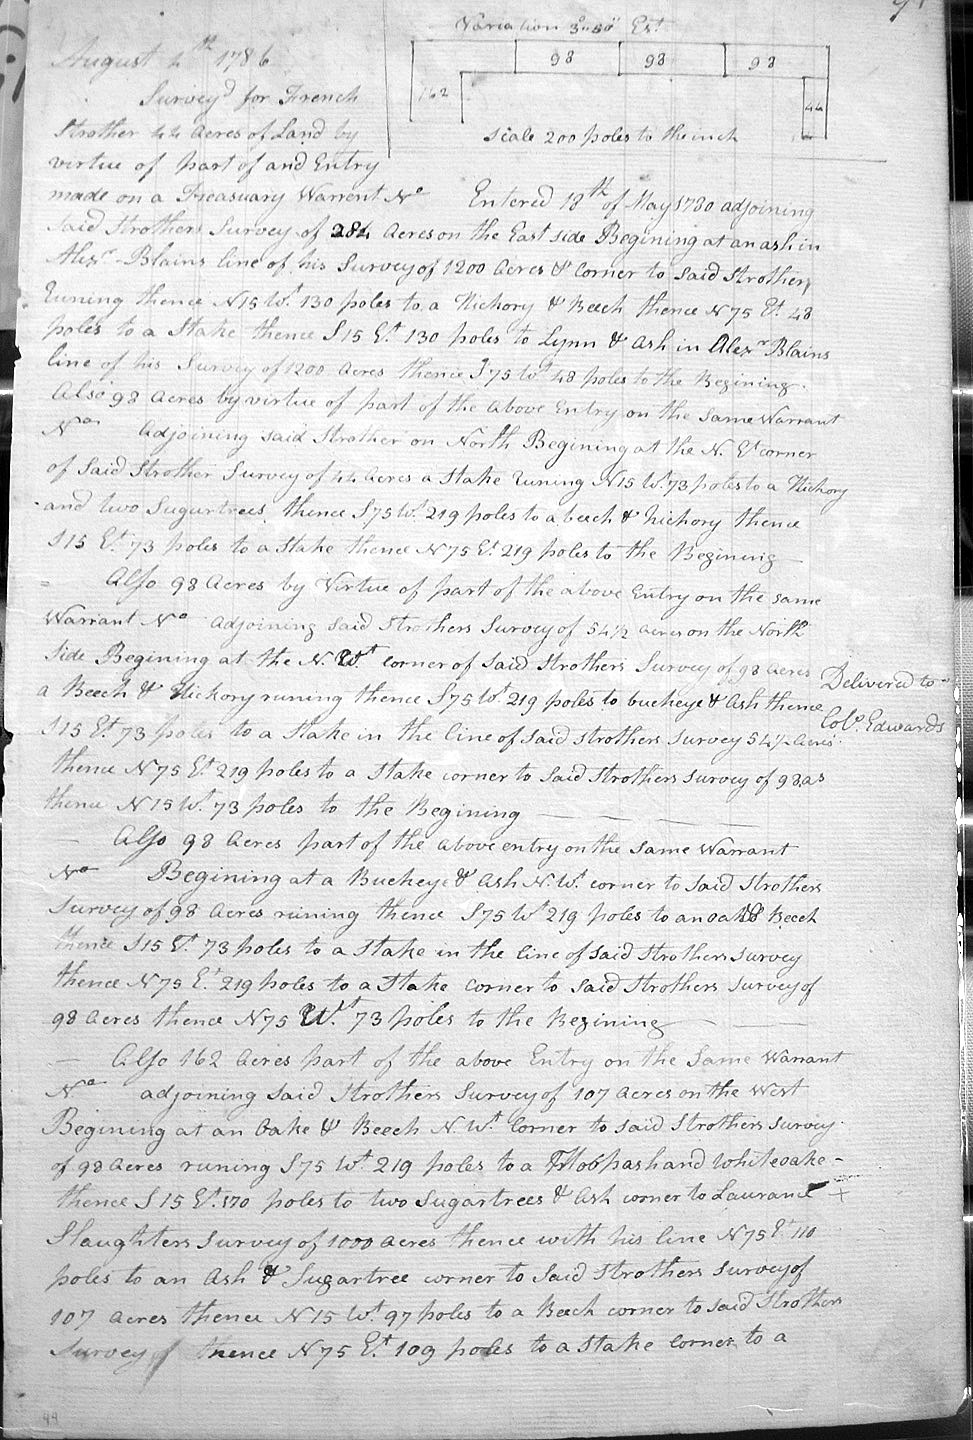 91
Variation 3° 50' Est
98 98 98
162
44
Scale 200 poles to the inch
August 4th 1786
Survey'd for French
Strother 44 Acres of Land by
virtue of part of and Entry
made on a Treasuary Warrent No Entered 18th of May 1780 adjoining
said Strothers Survey of 284 Acres on the East side Begining at an ash in
Alexr Blains line of his Survey of 1200 Acres & Corner to said Strother,
Runing thence N15 Wt 130 poles to a Hickory & Beech thence N75 Et 48
poles to a Stake thence S15 Et 130 poles to Lynn & Ash in Alexr Blains
line of his Survey of 1200 Acres thence S75 Wt 48 poles to the Begining.
Also 98 Acres by virtue of part of the Above Entry on the Same Warrant
No Adjoining said Strother on North Begining at the N. Et corner
of Said Strother Survey of 44 Acres a Stake Runing N15 Wt 73 poles to a Hickory
and two Sugartrees thence S75 Wt 219 poles to a beech & hickory thence
S15 Et 73 poles to a Stake thence N75 Et 219 poles to the Begining
Also 98 Acres by Virtue of part of the above Entry on the same
Warrant No Adjoining Said Strothers Survey of 54 1/2 Acres on the North
Side Begining at the N. Wt corner of Said Strothers Survey of 98 Acres
a Beech & Hickory runing thence S75 Wt 219 poles to buckeye & Ash thence
S15 Et 73 poles to a Stake in the line of Said Strothers Survey 54 1/2 Acres
Delivered to
Colo. Edwards
thence N75 Et 219 poles to a Stake corner to Said Strothers Survey of 98 as
thence N15 Wt 73 poles to the Begining
Also 98 Acres part of the above entry on the Same Warrant
No Begining at a Buckeye & Ash N. Wt. corner to Said Strothers
Survey of 98 Acres runing thence S75 Wt 219 poles to an oak & Beech
thence S15 Et 73 poles to a Stake in the line of Said Strothers Survey
thence N75 Et 219 poles to a Stake corner to Said Strothers Survey of
98 Acres thence N75 Wt 73 poles to the Begining
Also 162 Acres part of the above Entry on the Same Warrant
No adjoining Said Strothers Survey of 107 Acres on the West
Begining at an Oake & Beech N. Wt Corner to Said Strothers Survey
of 98 Acres runing S75 Wt 219 poles to a and white oake
thence S15 Et 170 poles to two Sugartrees & Ash corner to Laurance
Slaughters Survey of 1000 Acres thence with his line N75 Et 110
poles to an Ash & Sugartree corner to Said Strothers Survey of
107 Acres thence N15 Wt 97 poles to a Beech corner to Said Strothers
Survey of thence N75 Et 109 poles to a Stake Corner to a
44